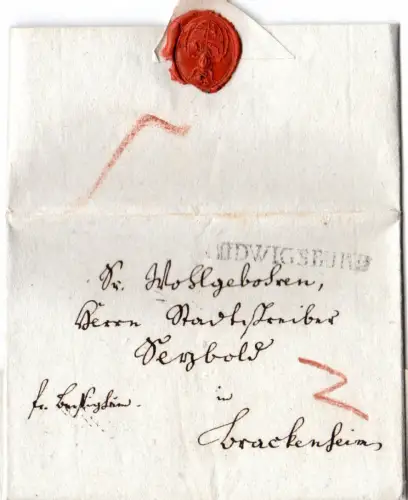 LUDWIGSBURG
Sr. Wohlgebohren,
Herrn Stadtschreiber
Seybold
fr. Besigheim.
in
Brackenheim